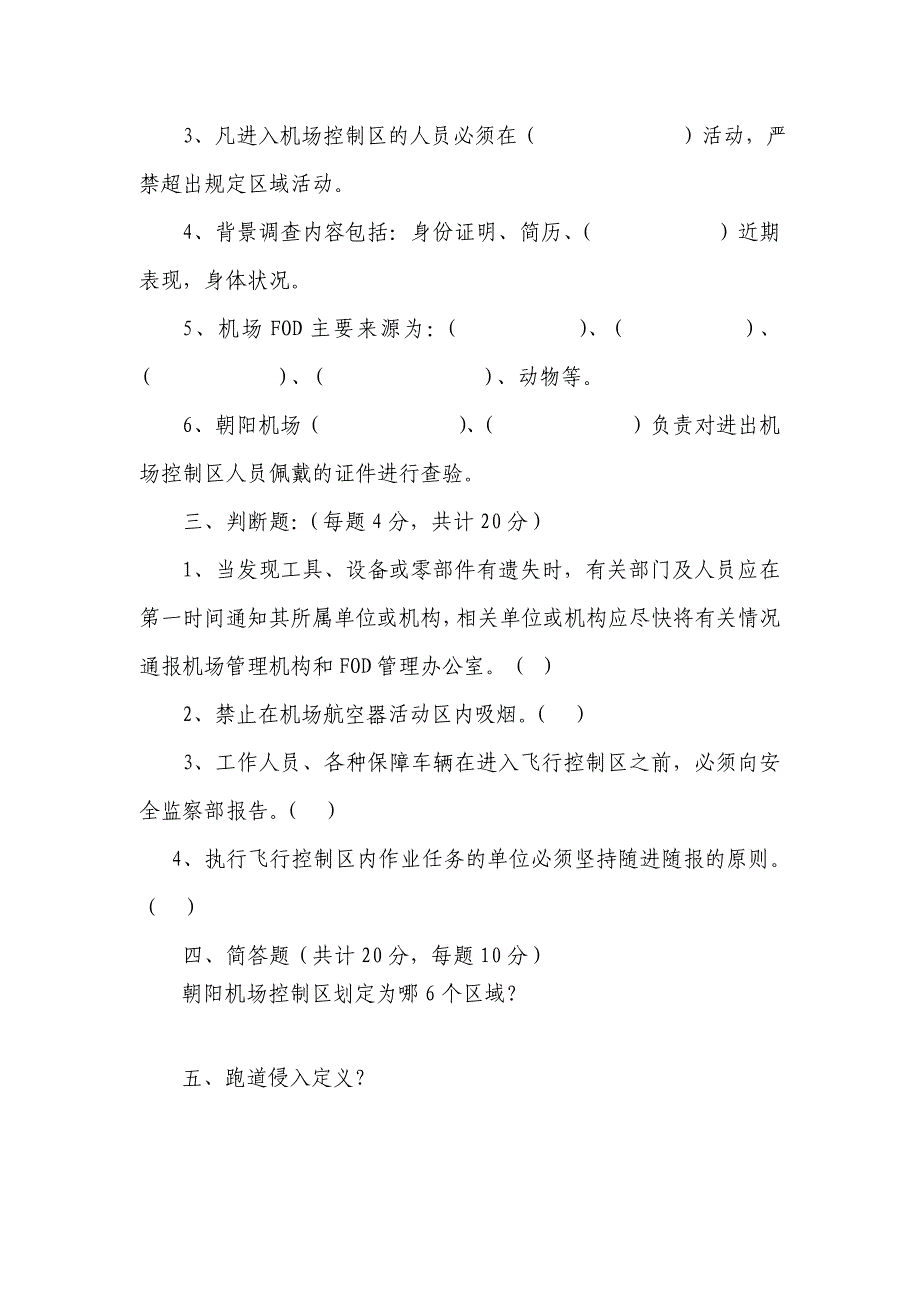 3、凡进入机场控制区的人员必须在（　　　　　　）活动，严
禁超出规定区域活动。
4、背景调查内容包括：身份证明、简历、（　　　　　）近期
表现，身体状况。
5、机场 FOD 主要来源为：（　　　　　）、（　　　　　）、
（　　　　　）、（　　　　　　）、动物等。
6、朝阳机场（　　　　　　）、（　　　　　　）负责对进出机
场控制区人员佩戴的证件进行查验。
三、判断题：（每题 4 分，共计 20 分）
1、当发现工具、设备或零部件有遗失时，有关部门及人员应在
第一时间通知其所属单位或机构，相关单位或机构应尽快将有关情况
通报机场管理机构和 FOD 管理办公室。（ ）
2、禁止在机场航空器活动区内吸烟。（　）
3、工作人员、各种保障车辆在进入飞行控制区之前，必须向安
全监察部报告。（　）
4、执行飞行控制区内作业任务的单位必须坚持随进随报的原则。
（　）
四、简答题（共计 20 分，每题 10 分）
朝阳机场控制区划定为哪 6 个区域？
五、跑道侵入定义？